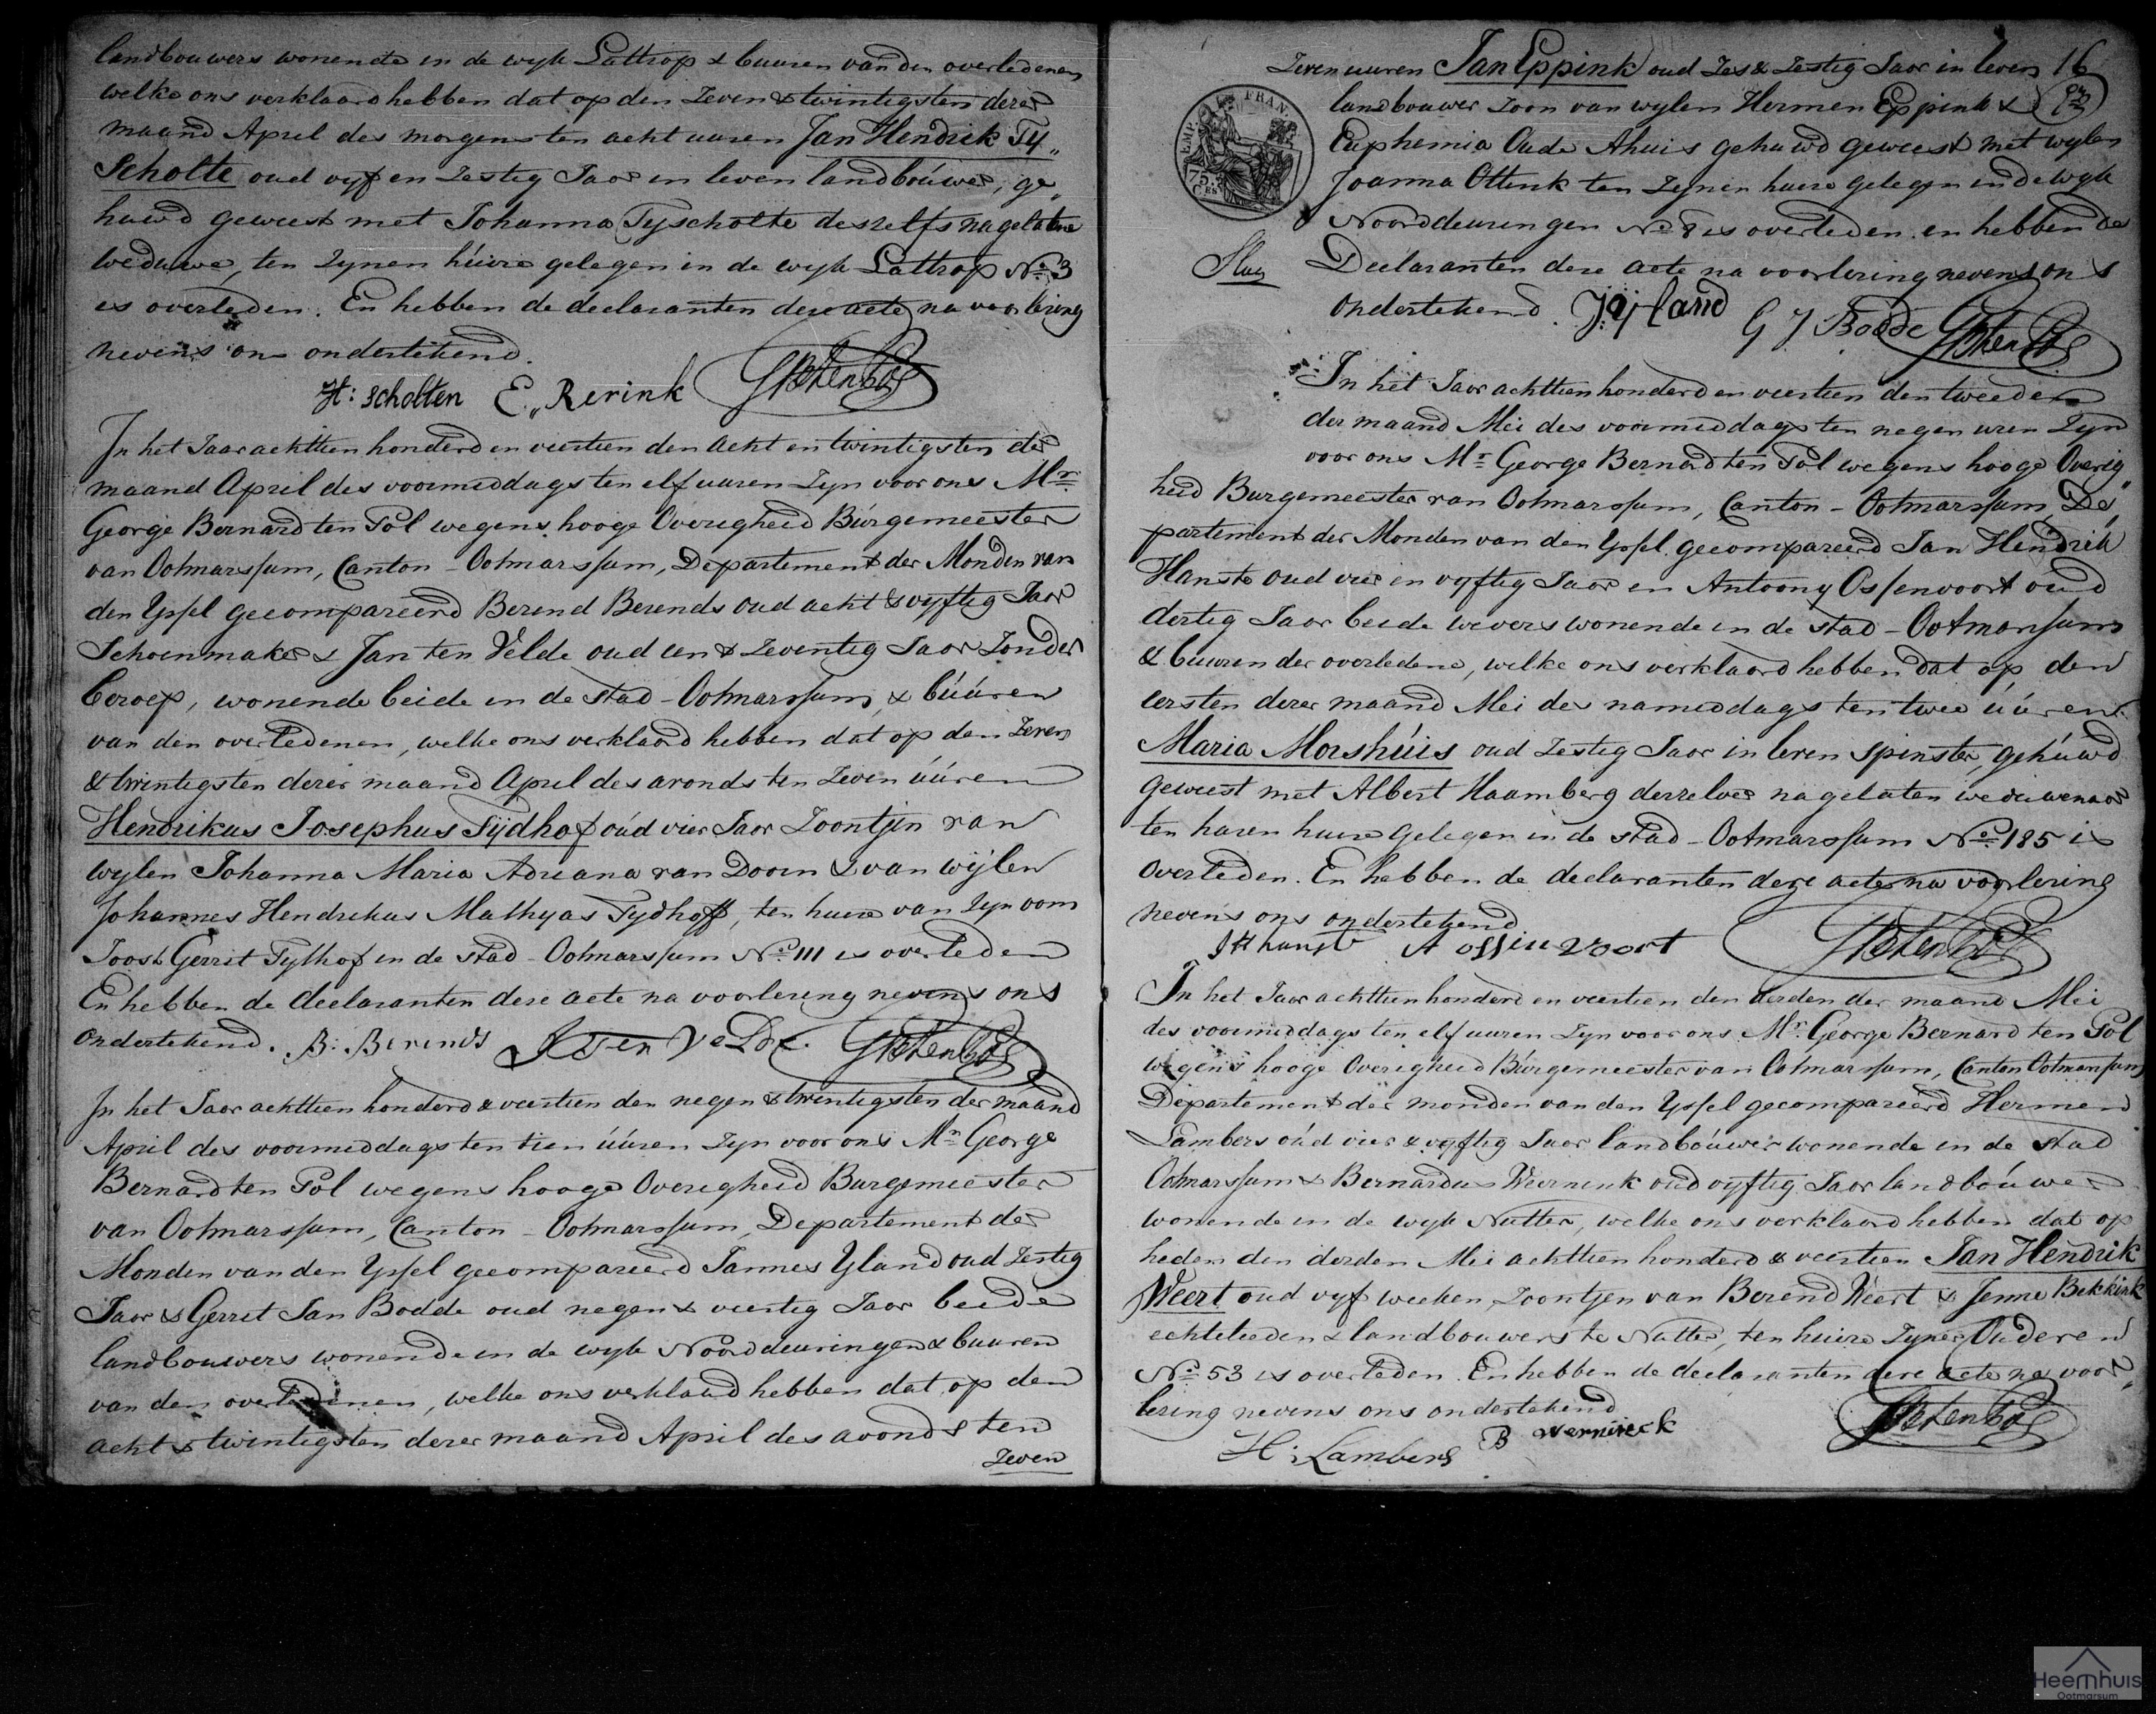 landbouwers wonende in de wyk Lattrop & buuren van den overledenen
welke ons verklaard hebben dat op den Zeven & twintigsten dezer
maand April des morgens ten acht uuren Jan Hendrick Ty„
Scholte oud vyf en Zestig Jaar in leven landbouwer, ge„
huwd geweest met Johanna Tyscholte deszelfs nagelatene
weduwe, ten Zynen huize gelegen in de wyk Lattrop No 3
is overleden. En hebben de declaranten deze acte na voorlezing
nevens ons ondertekend.
H: Scholten E„ Rerink GB ten Pol
In het Jaar achttien honderd en veertien den acht en twintigsten der
maand April des voormiddags ten elf uuren Zyn voor ons Mr
George Bernard ten Pol wegens hooge Overigheid Burgemeester
van Ootmarssum, Canton - Ootmarssum, Departement der Monden van
den Yssel gecompareerd Berend Berends oud acht & vyftig Jaar
Schoenmaker & Jan ten Velde oud een & Zeventig Jaar Zonder
beroep, wonende beide in de stad - Ootmarssum, & buuren
van den overledenen, welke ons verklaard hebben dat op den Zeven
& twintigsten dezer maand April des avonds ten Zeven uuren
Hendrikus Josephus Tijdhof oud vier Jaar Zoontjen van
wylen Johanna Maria Adriana van Doorn & van wijlen
Johannes Hendrikus Mathyas Tydhoff, ten huize van Zyn oom
Joost Gerrit Tythof in de stad - Ootmarssum No 111 is overleden
En hebben de declaranten deze acte na voorlezing nevens ons
ondertekend. B: Berends J Ten Velde. GB ten Pol
In het Jaar achttien honderd & veertien den negen & twintigsten der maand
April des voormiddags ten tien uuren Zyn voor ons Mr George
Bernard ten Pol wegens hooge Overigheid Burgemeester
van Ootmarssum, Canton - Ootmarssum, Departement der
Monden van den Yssel gecompareerd Jannes Yland oud Zestig
Jaar & Gerrit Jan Bodde oud negen & veertig Jaar beide
landbouwers wonende in de wyk Noorddeuringen & buuren
van den overledenen, welke ons verklaard hebben dat op den
acht & twintigsten dezer maand April des avonds ten
Zeven
Zeven uuren Jan Eppink oud Zes & Zestig Jaar in leven 16
landbouwer Zoon van wylen Hermen Eppink &
Euphemia Oude Ahuis gehuwd geweest met wylen
Joanna Ottink ten Zynen huize gelegen in de wyk
Noorddeuringen No 8 is overleden. en hebben de
Declaranten deze acte na voorlezing nevens ons
ondertekend. J: yland G J Bodde GB ten Pol
EMP. FRAN
75 CES
In het Jaar achttien honderd en veertien den tweeden
der maand Mei des voormiddags ten negen uren Zyn
voor ons Mr George Bernard ten Pol wegens hooge Overig„
heid Burgemeester van Ootmarssum, Canton - Ootmarssum, De„
partement der Monden van den Yssel gecompareerd Jan Hendrik
Hanste oud vier en vyftig Jaar en Antoony Ossenvoort oud
dertig Jaar beide wevers wonende in de stad - Ootmarssum
& buuren der overledene, welke ons verklaard hebben dat op den
eersten dezer maand Mei des namiddags ten twee uuren
Maria Morshuis oud Zestig Jaar in leven spinster, gehuwd
geweest met Albert Haamberg derzelver nagelaten weduwenaar
ten haren huize gelegen in de stad - Ootmarssum No 185 is
overleden. En hebben de declaranten deze acte na voorlezing
nevens ons ondertekend
JH hanste A ossinvoort GB ten Pol
In het Jaar achttien honderd en veertien den derden der maand Mei
des voormiddags ten elf uuren Zyn voor ons Mr George Bernard ten Pol
wegens hooge Overigheid Burgemeester van Ootmarssum, Canton Ootmarssum
Departement der monden van den Yssel gecompareerd Hermen
Lambers oud vier & vyftig Jaar landbouwer wonende in de stad
Ootmarssum & Bernardus Weernink oud vyftig Jaar landbouwer
wonende in de wyk Nutter, welke ons verklaard hebben dat op
heden den derden Mei achttien honderd & veertien Jan Hendrik
Weert oud vyf weeken Zoontjen van Berend Weert & Jenne Bekkink
echtelieden & landbouwers te Nutter, ten huize Zyner Ouderen
No 53 is overleden. En hebben de declaranten deze acte na voor„
lezing nevens ons ondertekend
H: Lambers B wernineck GB ten Pol
Heemhuis
Ootmarsum